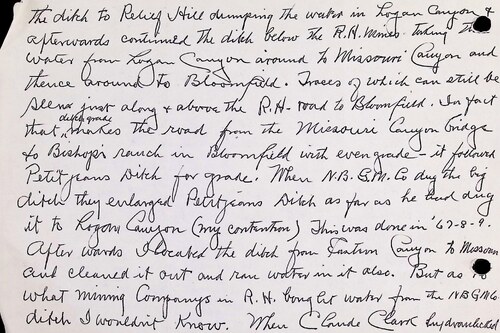 the ditch to Relief Hill dumping the water in Logan Canyon &
afterwards continued the ditch below the R.H. mines taking the
water from Logan Canyon around to Missouri Canyon and
thence around to Bloomfield. Traces of which can still be
seen just along & above the R.H. road to Bloomfield. In fact
that ditch grade makes the road from the Missouri Canyon bridge
to Bishop's ranch in Bloomfield with even grade - it followed
Petitjeans Ditch for grade. When N.B.G.M.Co dug the big
ditch they enlarged Petitjeans Ditch as far as he had dug
it to Logan Canyon (my contention) This was done in '67-8-9.
After wards I located the ditch from Canyon to Missouri
and cleaned it out and ran water in it also. But as to
what Mining Companys in R.H. bought water from the N.B.G.M.Co
ditch I wouldn't know. When Claude Clark hydraulicked